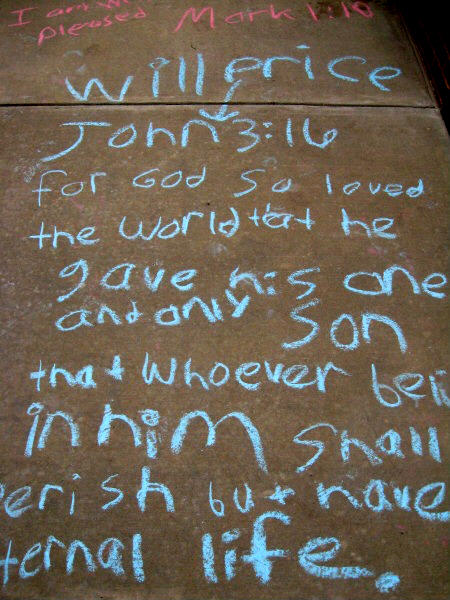 I am
pleased Mark 1:10
will price
John 3:16
for God so loved
the world that he
gave his one
and only son
that whoever bei
in him shall
erish but have
ternal life.